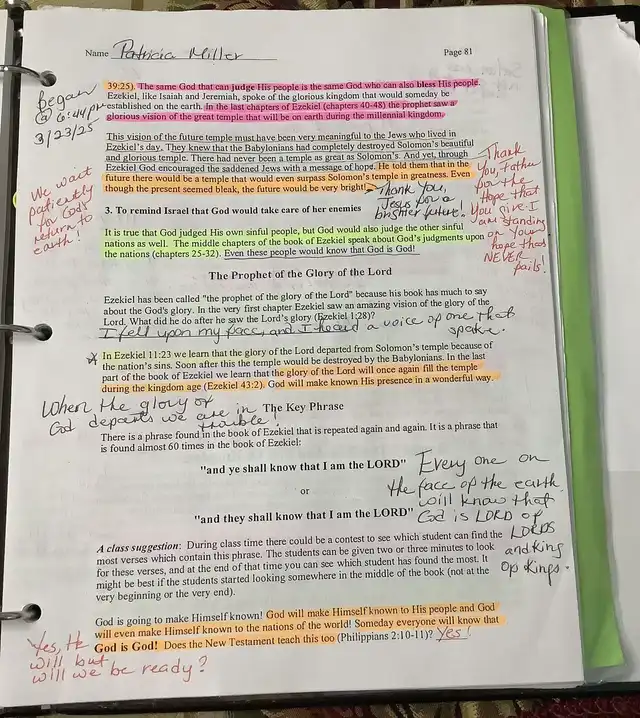 Name Patricia Miller Page 81
Began
@ 6:44 pm
3/23/25
39:25). The same God that can judge His people is the same God who can also bless His people.
Ezekiel, like Isaiah and Jeremiah, spoke of the glorious kingdom that would someday be
established on the earth. In the last chapters of Ezekiel (chapters 40-48) the prophet saw a
glorious vision of the great temple that will be on earth during the millennial kingdom.
This vision of the future temple must have been very meaningful to the Jews who lived in
Ezekiel's day. They knew that the Babylonians had completely destroyed Solomon's beautiful
and glorious temple. There had never been a temple as great as Solomon's. And yet, through
Ezekiel God encouraged the saddened Jews with a message of hope. He told them that in the
future there would be a temple that would even surpass Solomon's temple in greatness. Even
though the present seemed bleak, the future would be very bright!
Thank You,
Jesus for a
brighter future.
We wait
patiently
for God's
return to
earth!
Thank
You, Father
for the
Hope that
You give. I
am standing
on Your
hope that
NEVER
fails!
3. To remind Israel that God would take care of her enemies
It is true that God judged His own sinful people, but God would also judge the other sinful
nations as well. The middle chapters of the book of Ezekiel speak about God's judgments upon
the nations (chapters 25-32). Even these people would know that God is God!
The Prophet of the Glory of the Lord
Ezekiel has been called "the prophet of the glory of the Lord" because his book has much to say
about the God's glory. In the very first chapter Ezekiel saw an amazing vision of the glory of the
Lord. What did he do after he saw the Lord's glory (Ezekiel 1:28)?
I fell upon my face, and I heard a voice of one that
spake.
In Ezekiel 11:23 we learn that the glory of the Lord departed from Solomon's temple because of
the nation's sins. Soon after this the temple would be destroyed by the Babylonians. In the last
part of the book of Ezekiel we learn that the glory of the Lord will once again fill the temple
during the kingdom age (Ezekiel 43:2). God will make known His presence in a wonderful way.
When the glory of
God departs we are in
trouble!
The Key Phrase
There is a phrase found in the book of Ezekiel that is repeated again and again. It is a phrase that
is found almost 60 times in the book of Ezekiel:
"and ye shall know that I am the LORD"
or
"and they shall know that I am the LORD"
Every one on
the face of the earth
will know that
God is LORD of
LORDS
and King
of Kings.
A class suggestion: During class time there could be a contest to see which student can find the
most verses which contain this phrase. The students can be given two or three minutes to look
for these verses, and at the end of that time you can see which student has found the most. It
might be best if the students started looking somewhere in the middle of the book (not at the
very beginning or the very end).
God is going to make Himself known! God will make Himself known to His people and God
will even make Himself known to the nations of the world! Someday everyone will know that
God is God! Does the New Testament teach this too (Philippians 2:10-11)? Yes!
Yes, He
will but
will we be ready?